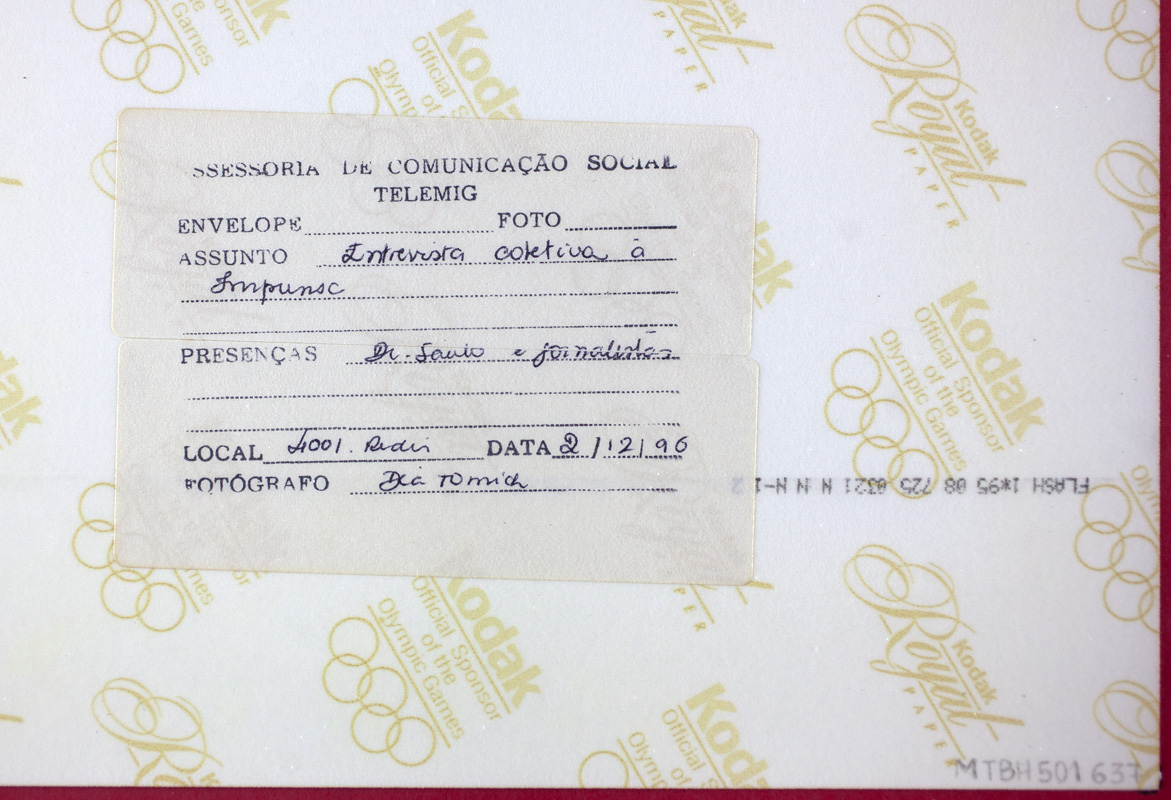 SSESSORIA DE COMUNICAÇÃO SOCIAL
TELEMIG
ENVELOPE FOTO
ASSUNTO Entrevista coletiva à
Imprensa
PRESENÇAS Dr. Saulo e jornalistas
LOCAL DATA 2/12/96
FOTÓGRAFO
FLASH 1*95 08 725 0321 N N N-1 2
MTBH501637
Kodak
Official Sponsor
of the
Olympic Games
Kodak
Royal
PAPER